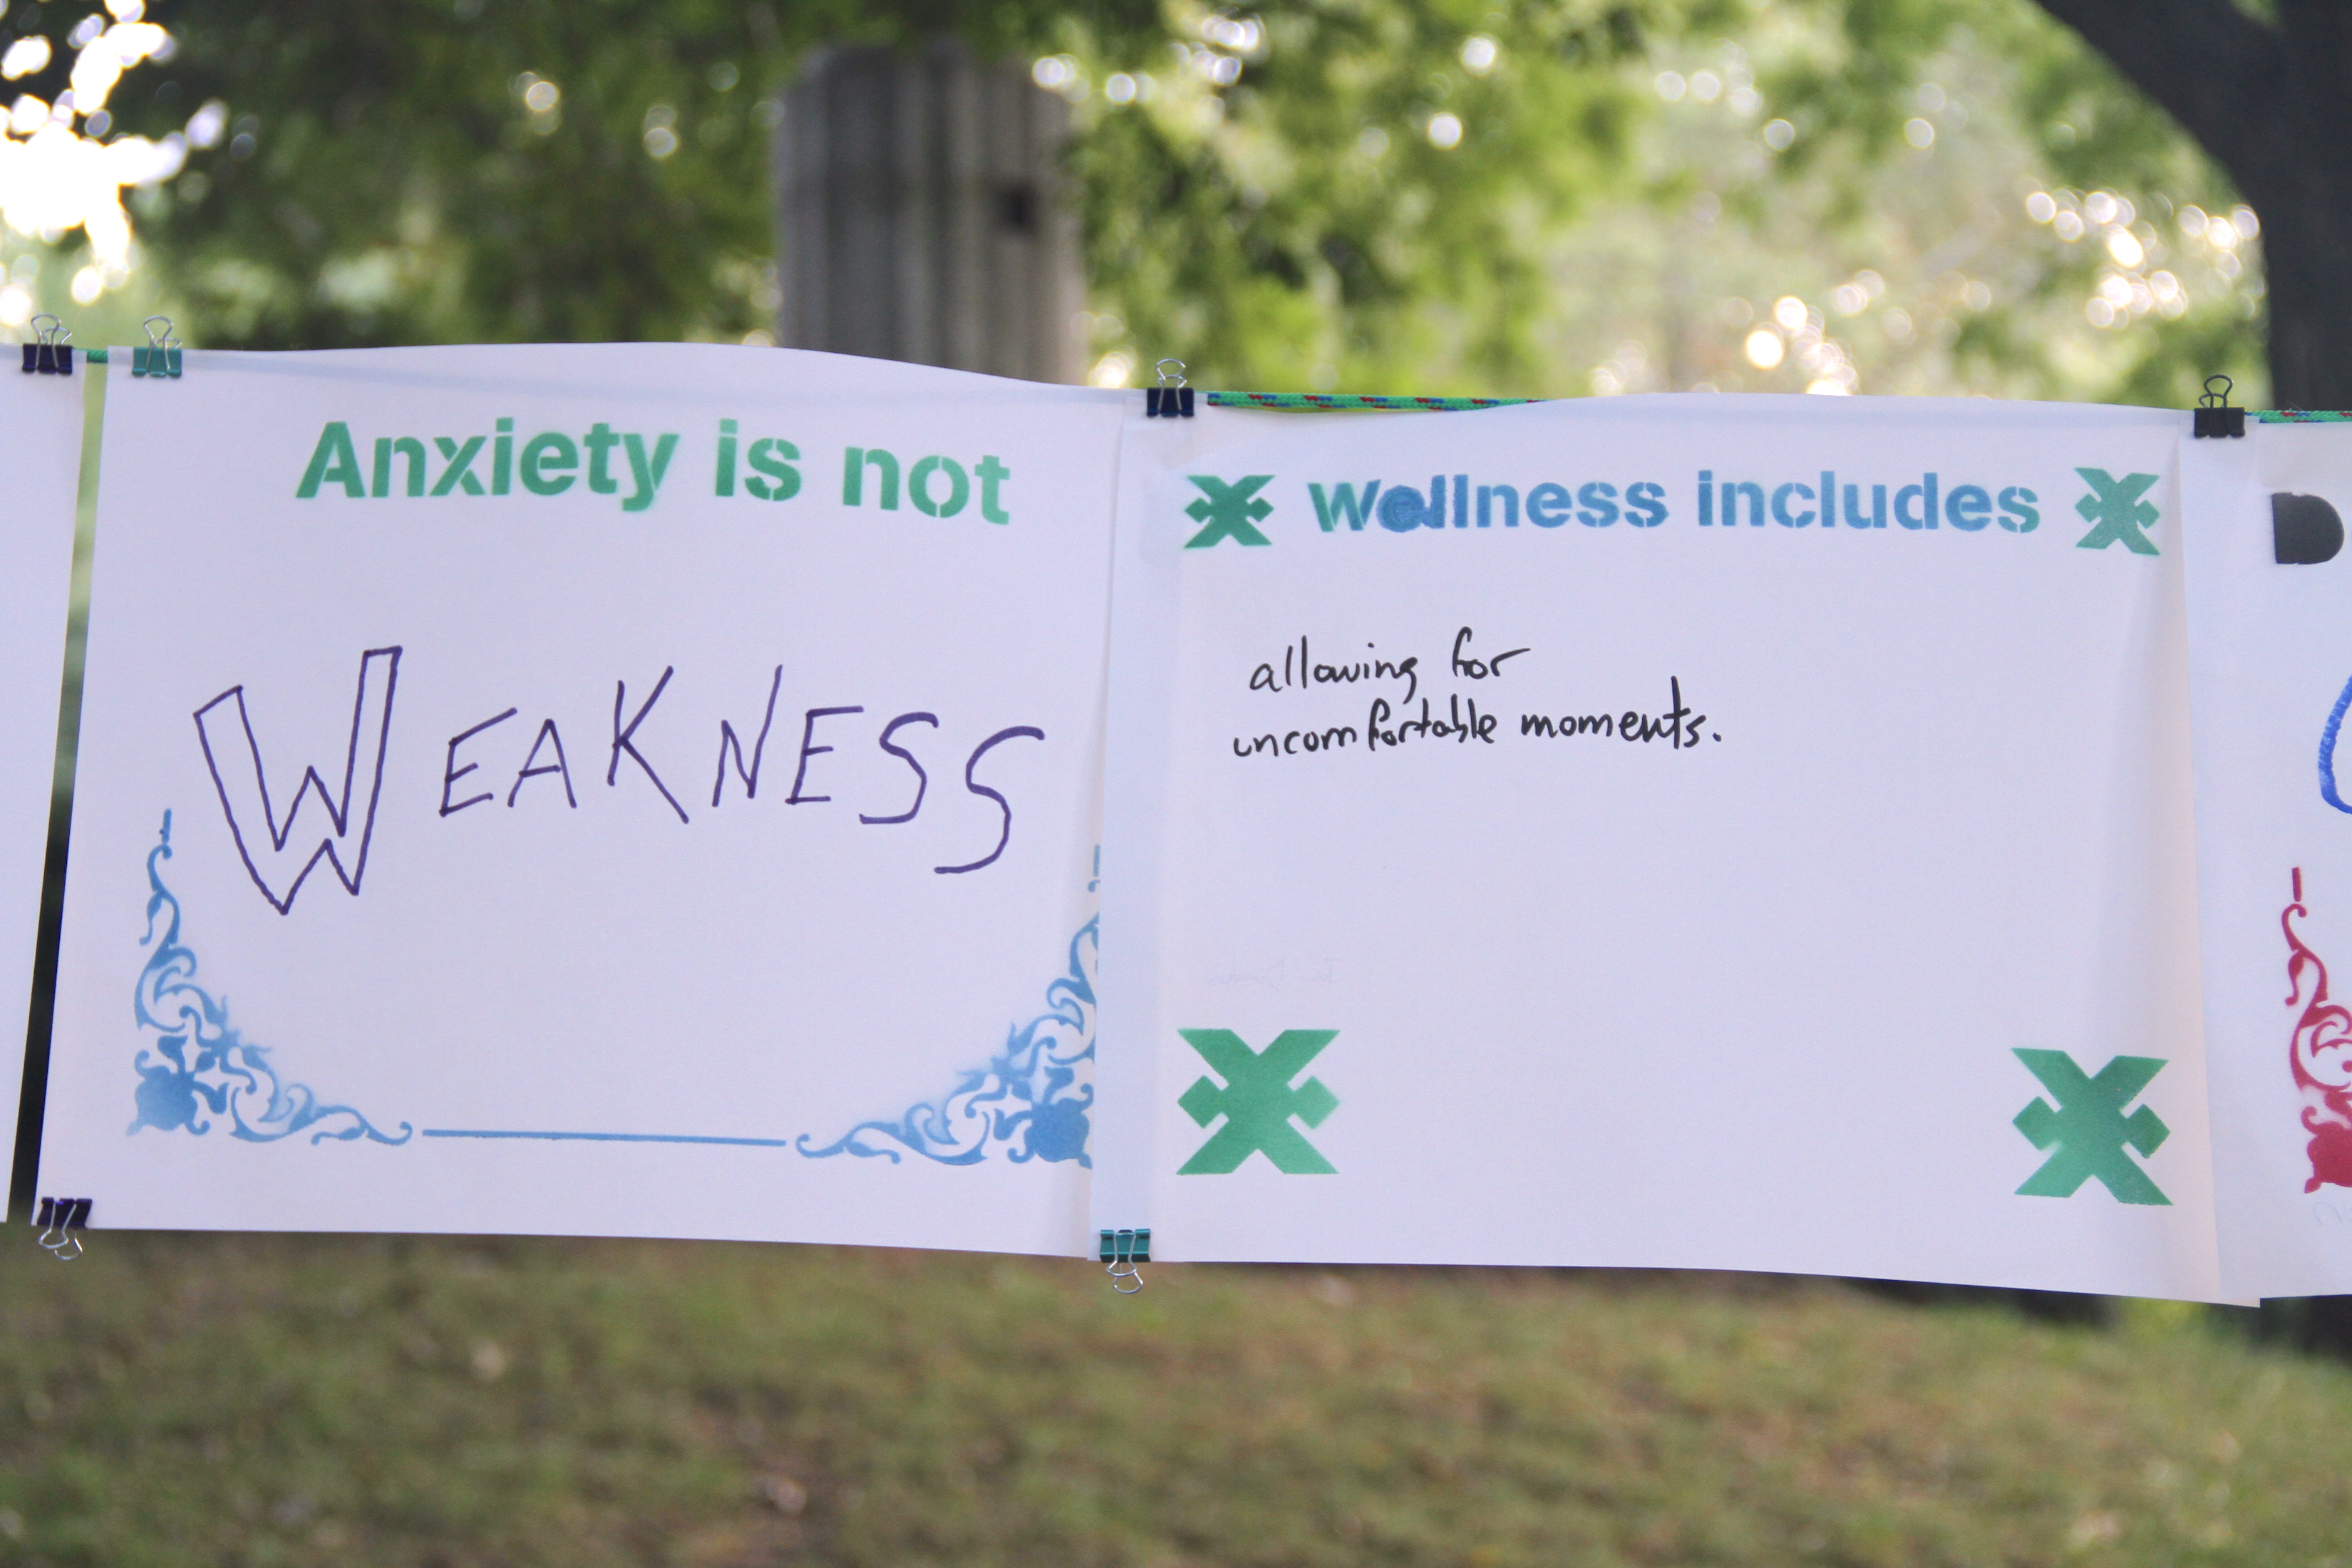 Anxiety is not
WEAKNESS
Wellness includes
allowing for
uncomfortable moments.